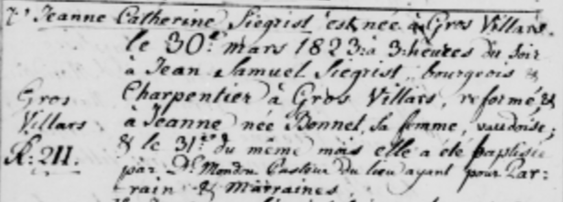 7. Jeanne Catherine Siegrist est née à Gros Villars
le 30.e mars 1823 à 3 heures du soir
à Jean Samuel Siegrist, bourgeois &
Charpentier à Gros Villars, reformé, &
à Jeanne née Bonnet, sa femme, vaudoise;
& le 31.e du même mois elle a été baptisée
par Dl. Mondon Pasteur du lieu ayant pour Par-
rain & Marraines
Gros
Villars
R: 211.